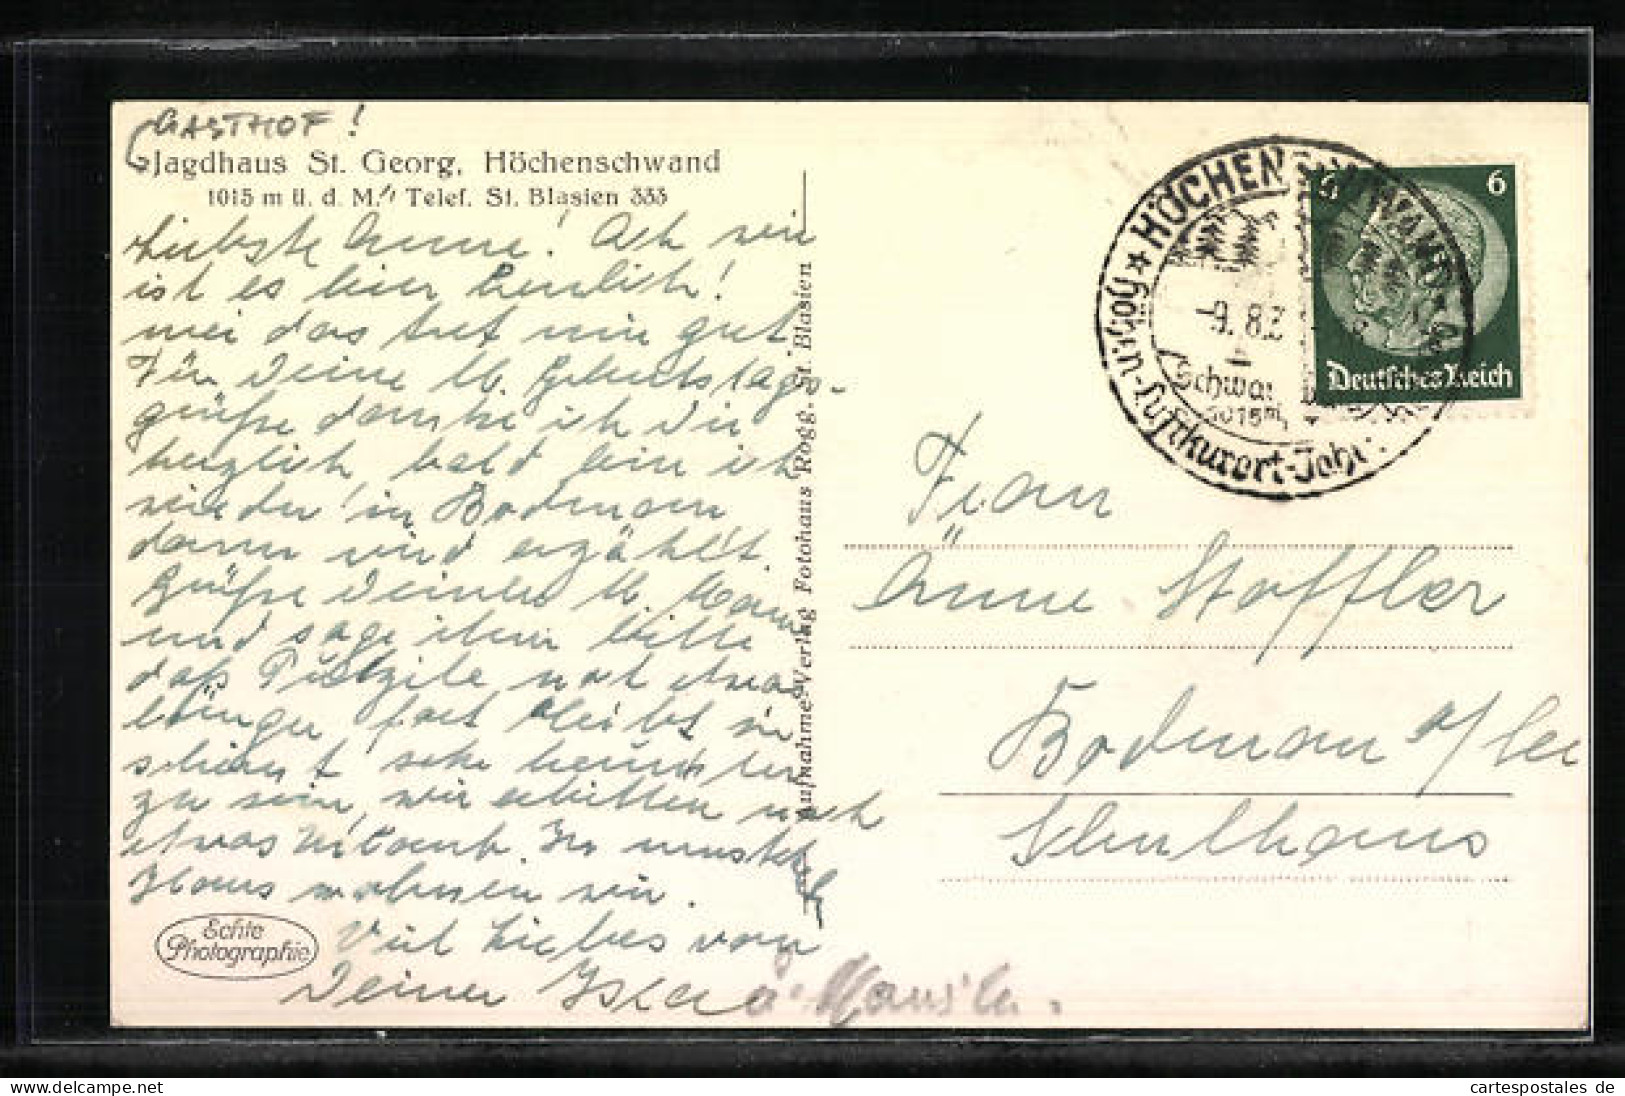 GASTHOF!
Jagdhaus St. Georg, Höchenschwand
1015 m ü. d. M. Telef. St. Blasien 333
Liebste Änne! Ach wie
ist es hier herrlich!
mei das tut mir gut.
Für Deine lb. Geburtstags-
grüße danke ich Dir
herzlich bald bin ich
wieder in Bodman
dann wird erzählt.
Grüße Deinen lb. Mann
und sage ihm bitte
daß noch etwas
länger fort bleibt sie
scheint sehr herunter
zu sein, wir erbitten noch
etwas Urlaub. Im
Haus wohnen wir.
Viel Liebes von
Deiner
Echte
Photographie
Aufnahme-Verlag Fotohaus Rogg, St. Blasien
HÖCHENSCHWAND
Höhen-u-Luftkurort-
-9. 8.3
Schwa
1015m
6 6
Deutsches Reich
Frau
Änne Stoffler
Bodman a/See
Schulhaus
cartespostales.de
cartespostales de